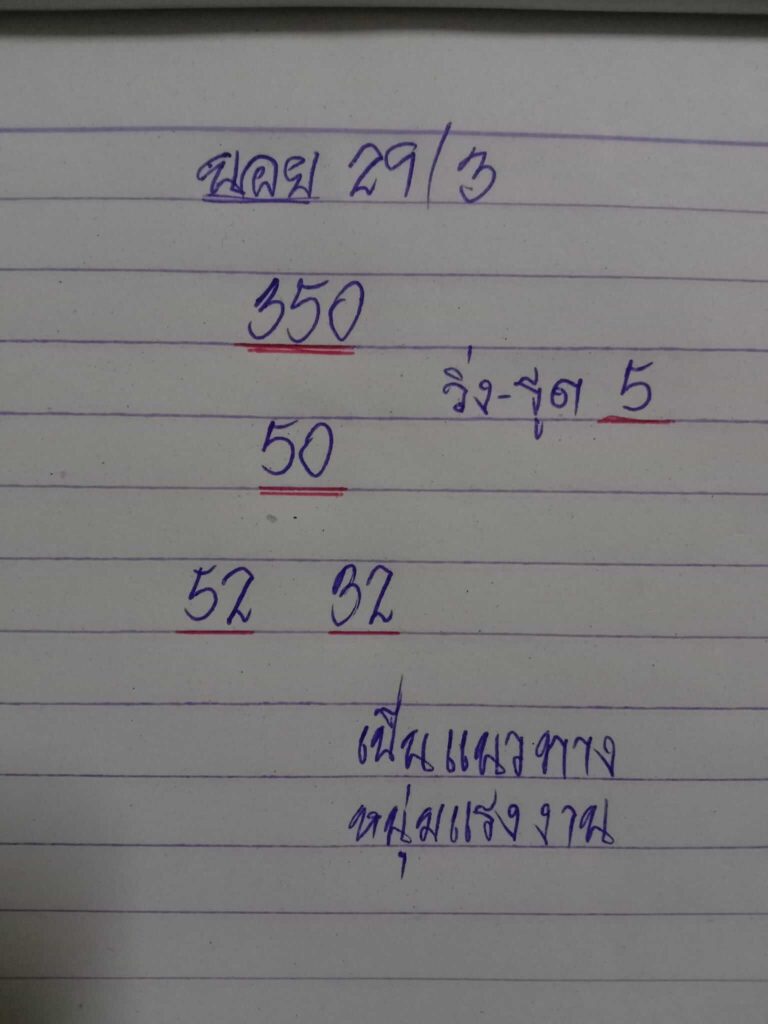 ฆอย 29/3
350
วิ่ง-รูด 5
50
52 32
เป็นแนวทาง
หนุ่มแรงงาน